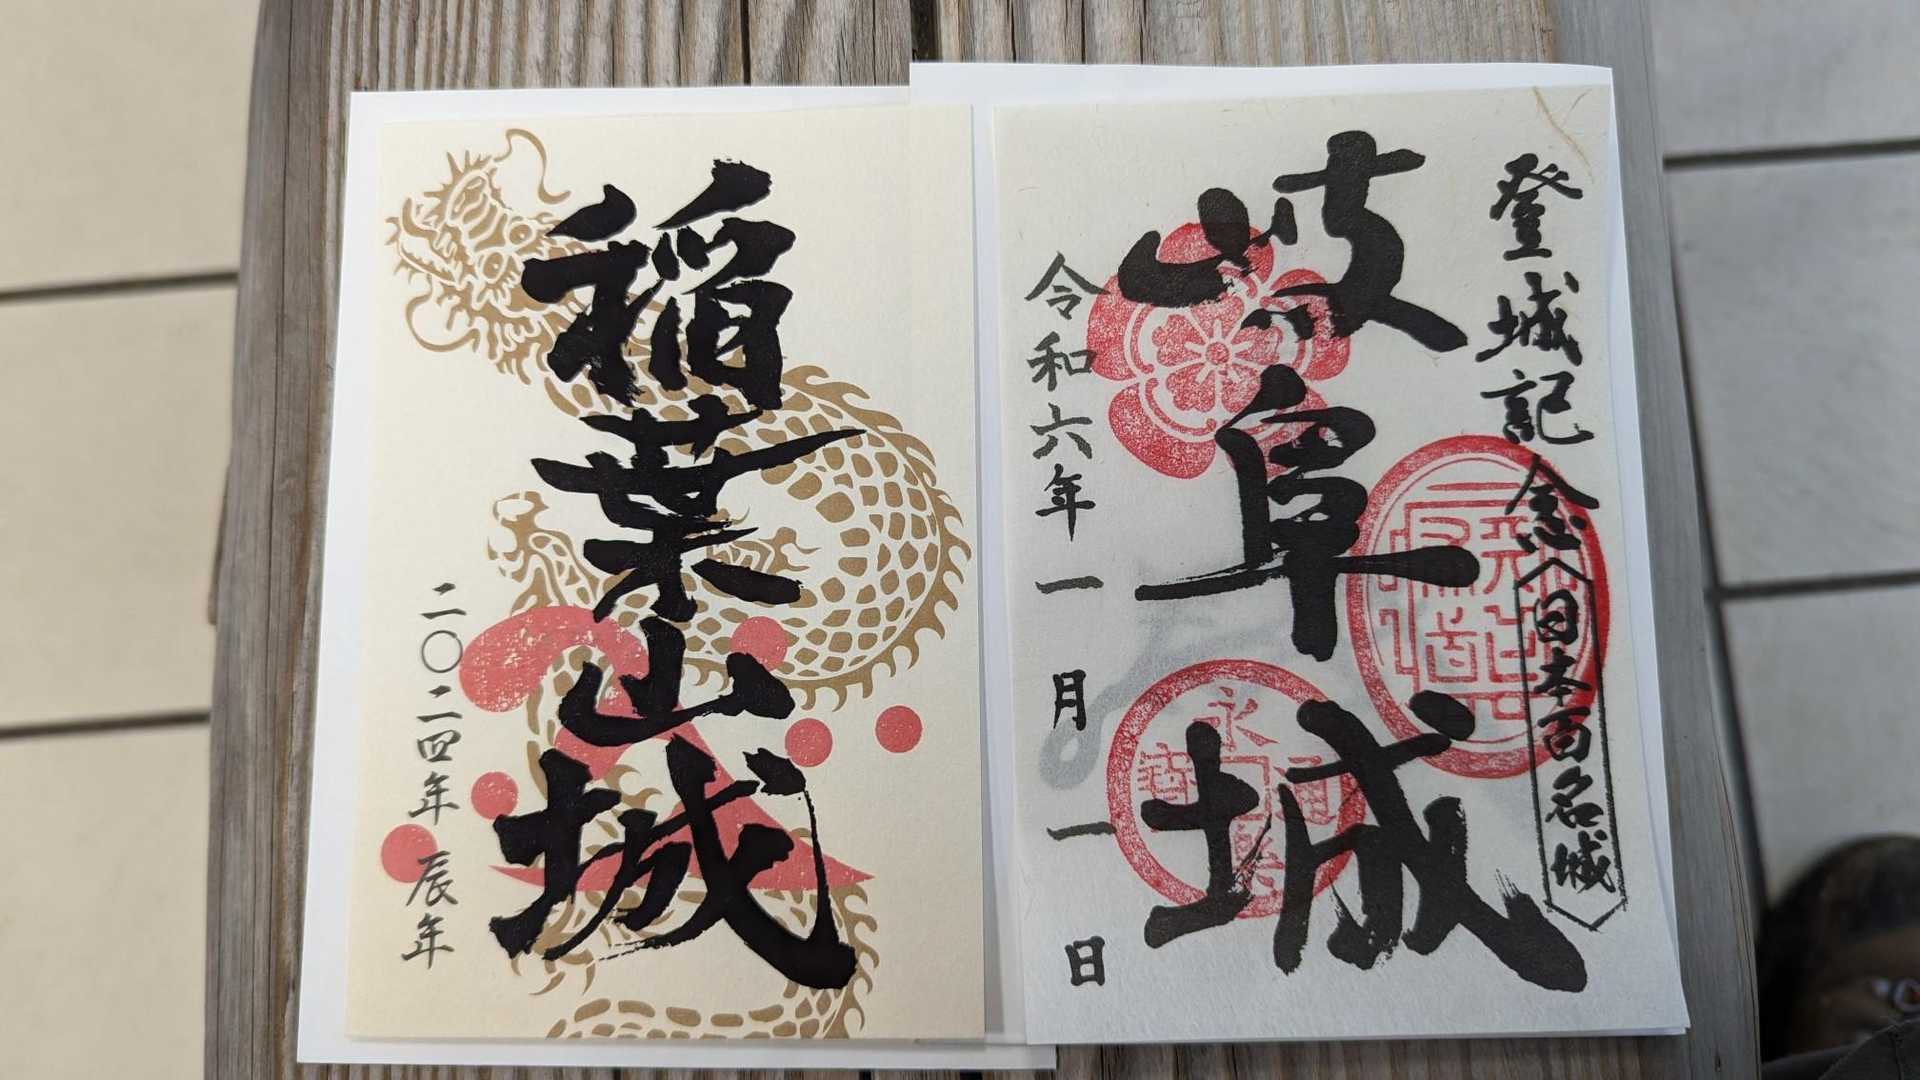 稲葉山城
二〇二四年 辰年
登城記念 日本百名城
岐阜城
令和六年一月一日
永樂通寳